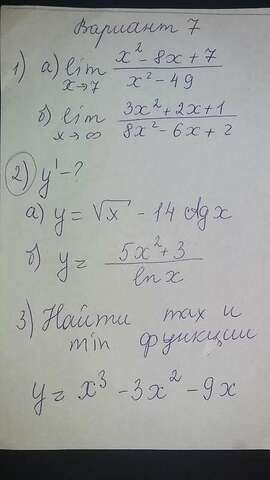 Вариант 7
1) а) lim x→7 (x² - 8x + 7)/(x² - 49)
б) lim x→∞ (3x² + 2x + 1)/(8x² - 6x + 2)
2) y' - ?
а) y = √x - 14 ctg x
б) y = (5x² + 3)/(ln x)
3) Найти max и
min функции
y = x³ - 3x² - 9x